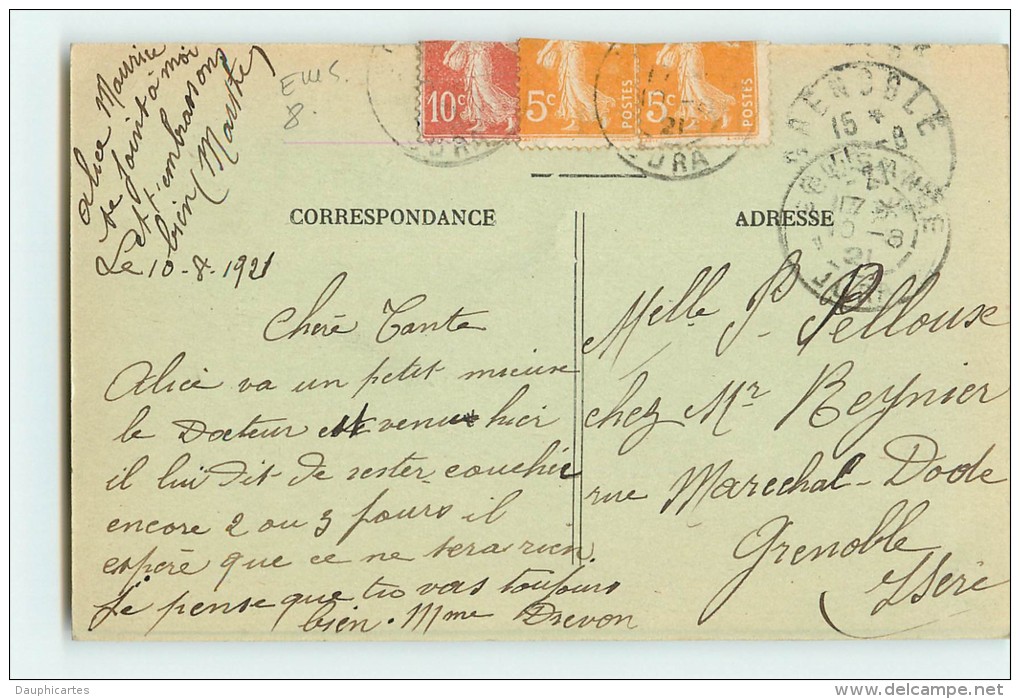 Alice Maurice
se joint à moi
et t'embrassons
bien (Marthe)
EMS.
8.
10c
5c
POSTES
5c
POSTES
JURA
GRENOBLE
15 *
-8
21
17 *
10-8
21
JURA
CORRESPONDANCE
ADRESSE
Le 10-8-1921
Chère Tante
Alice va un petit mieux
le Docteur est venu hier
il lui dit de rester couchée
encore 2 ou 3 jours il
espère que ce ne sera rien
je pense que tu vas toujours
bien. Mme Drevon
Melle P. Pelloux
chez Mr Reynier
rue Marechal-Dode
Grenoble
Isère
Dauphicartes
www.delcampe.net